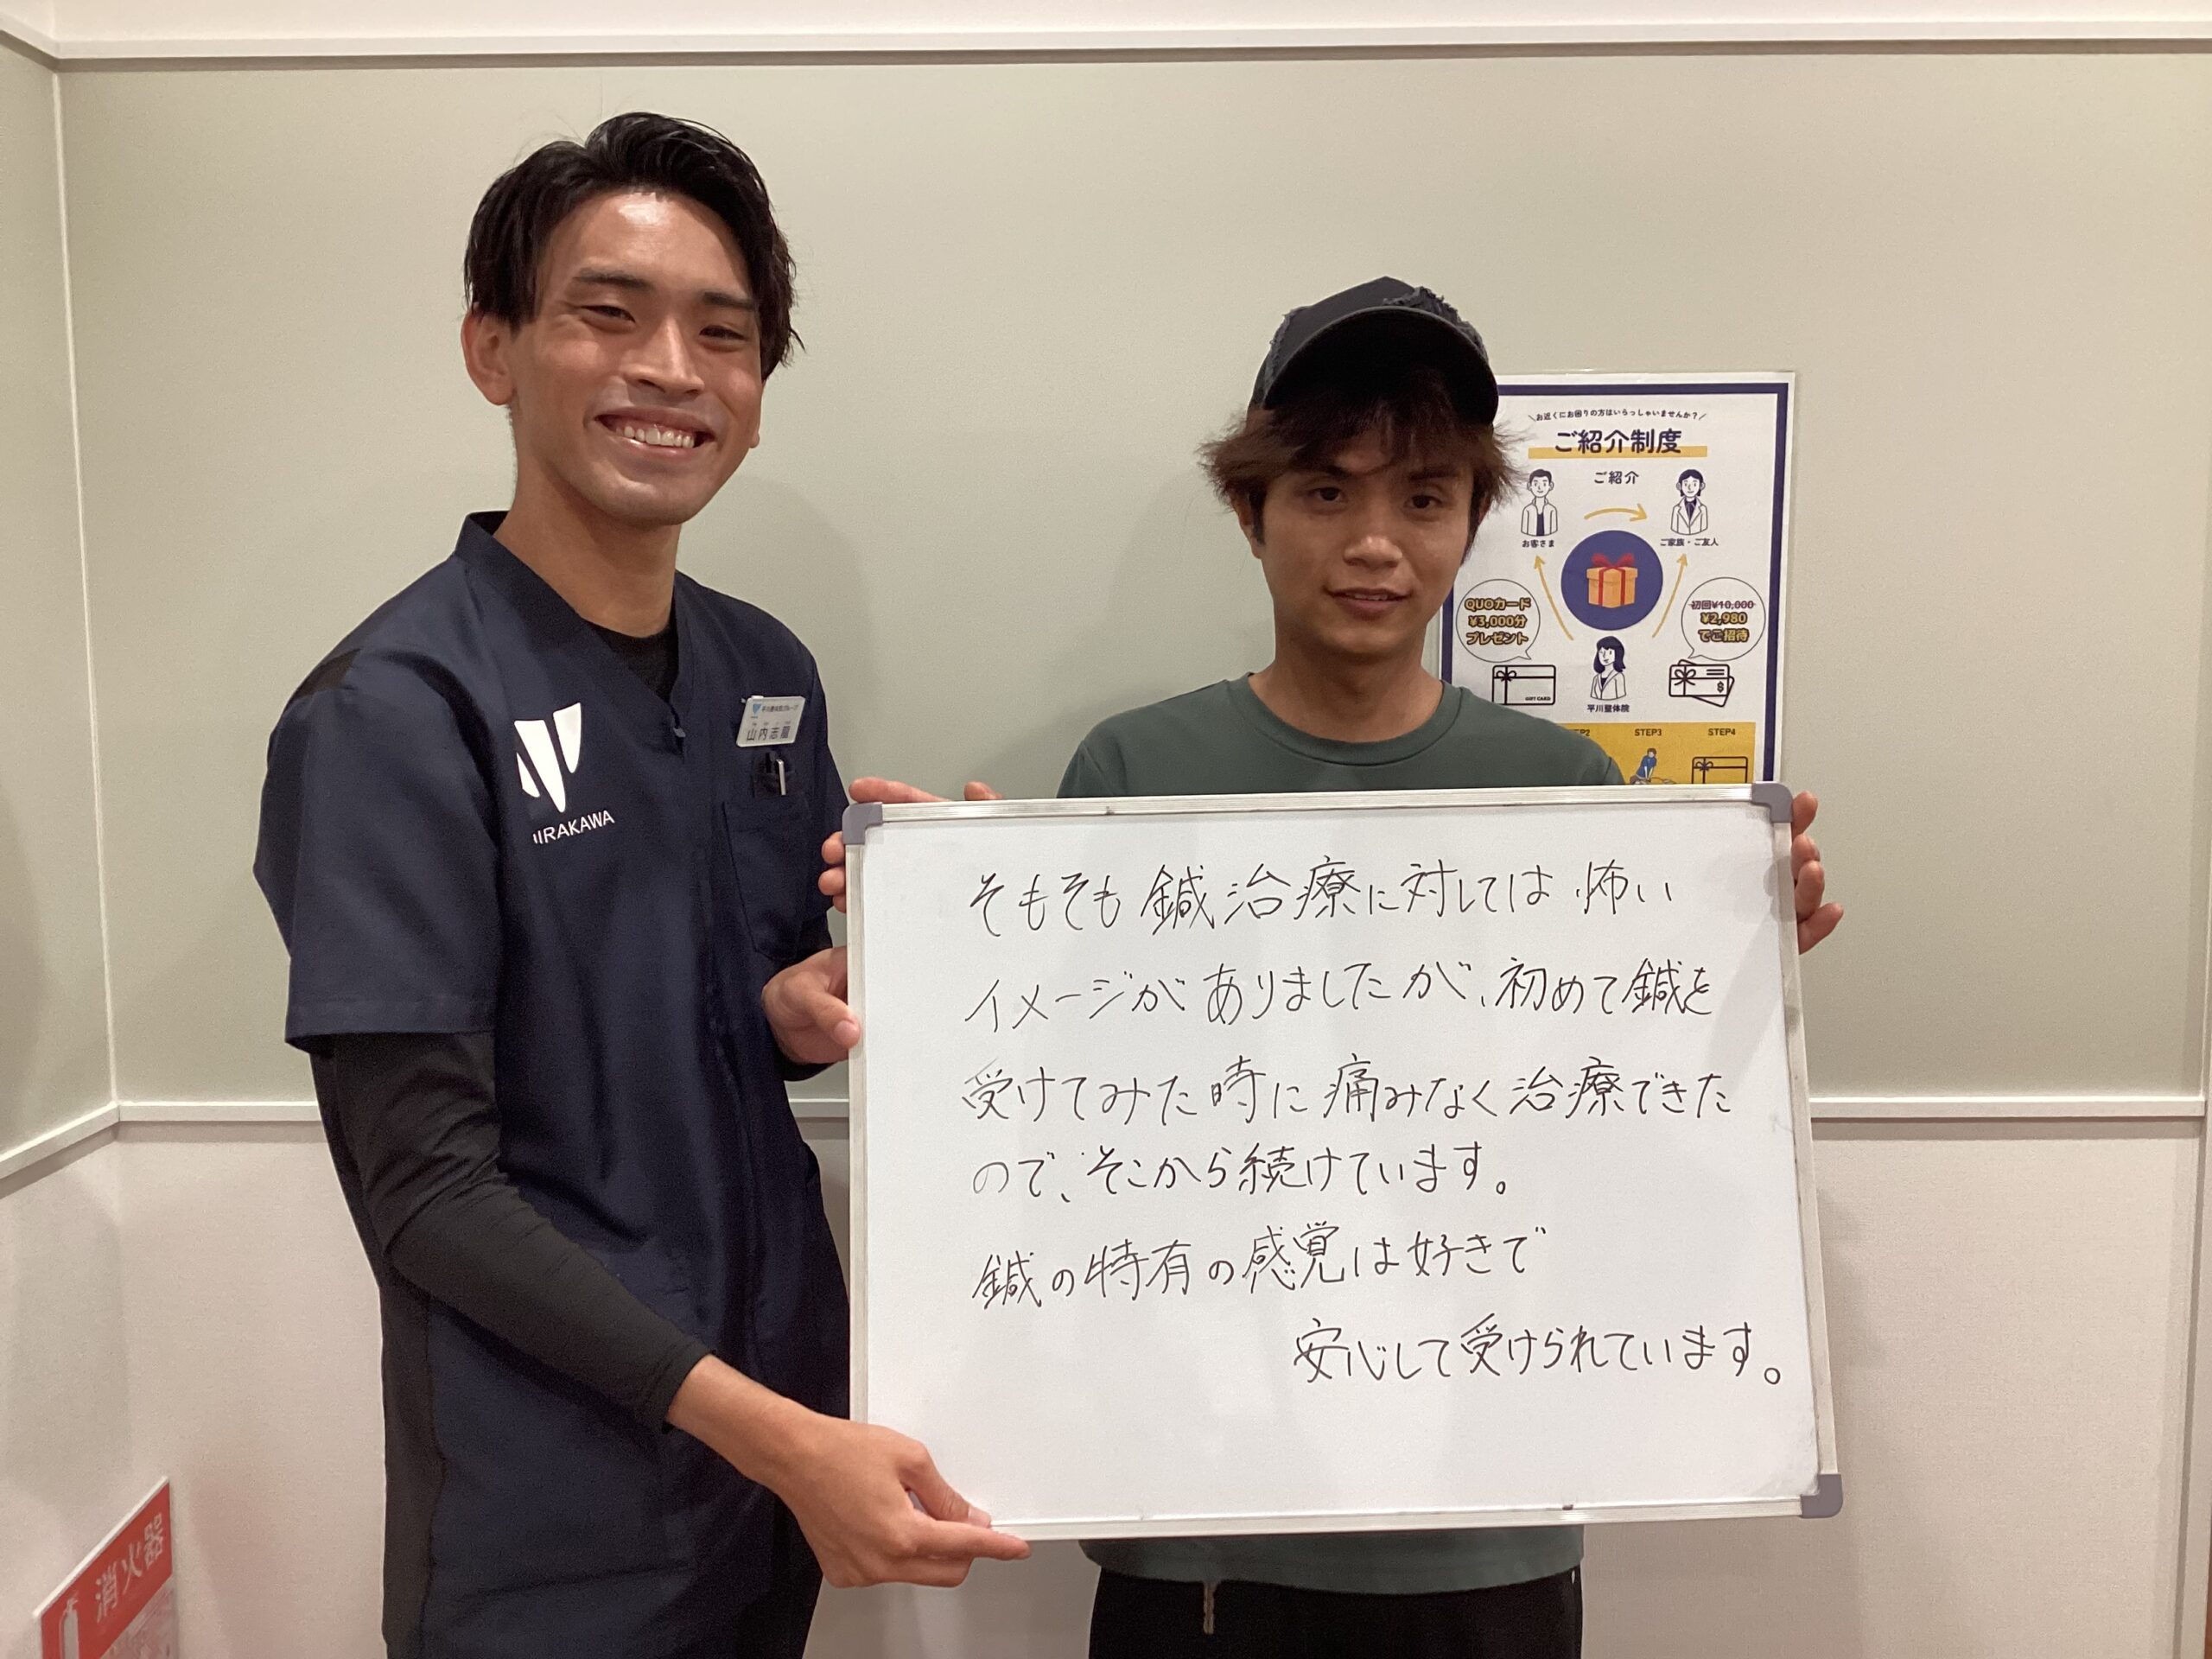 そもそも鍼治療に対しては怖い
イメージがありましたが、初めて鍼を
受けてみた時に痛みなく治療できた
ので、そこから続けています。
鍼の特有の感覚は好きで
安心して受けられています。
IRAKAWA
山内志龍
お近くにお困りの方はいらっしゃいませんか?
ご紹介制度
ご紹介
お客さま
ご家族・ご友人
QUOカード
¥3,000分
プレゼント
初回¥10,000
¥2,980
でご招待
GIFT CARD
平川整体院
STEP3
STEP4
消火器